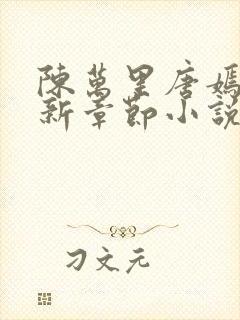 陳萬里唐嫣
新章節小說
刁文元